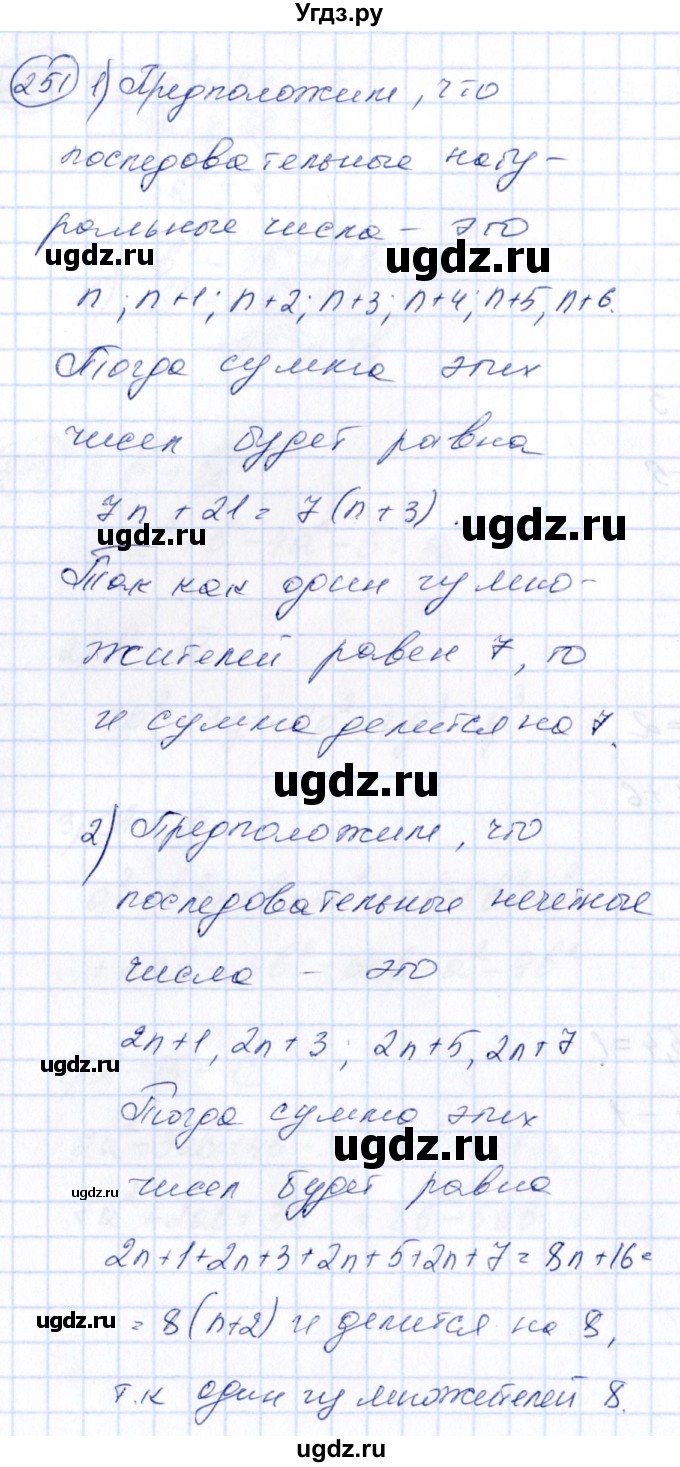 Угдз.ру
251 1) Предположим, что
последовательные нату-
ральные числа – это
ugdz.ru ugdz.ru
n; n+1; n+2; n+3; n+4; n+5, n+6.
Тогда сумма этих
чисел будет равна
7n + 21 = 7(n+3).
ugdz.ru ugdz.ru
Так как один из множо-
жителей равен 7, то
и сумма делится на 7.
ugdz.ru
2) Предположим, что
последовательные нечетные
числа – это
2n+1, 2n+3; 2n+5, 2n+7.
ugdz.ru
Тогда сумма этих
ugdz.ru
ugdz.ru чисел будет равна
2n+1+2n+3+2n+5+2n+7=8n+16=
ugdz.ru = 8(n+2) и делится на 8,
т.к один из множителей 8.
ugdz.ru